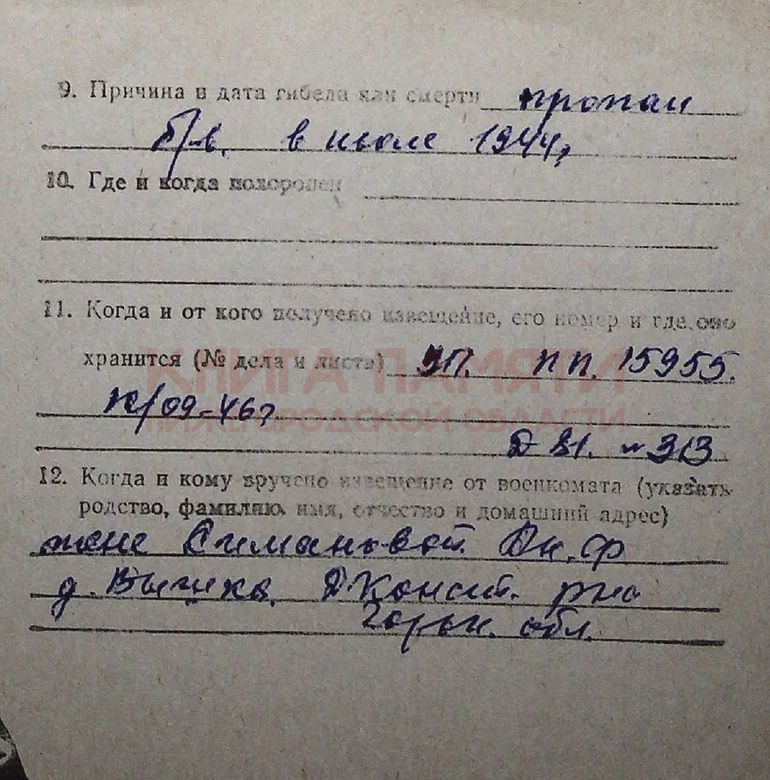 9. Причина и дата гибели или смерти пропал
б/в. в июле 1944г
10. Где и когда похоронен
11. Когда и от кого получено извещение, его номер и где оно
хранится (№ дела и листа) УП. ПП. 15955.
К/09-46г
Д 81. 313
КНИГА ПАМЯТИ
НИЖЕГОРОДСКОЙ ОБЛАСТИ
12. Когда и кому вручено извещение от военкомата (указать
родство, фамилию, имя, отчество и домашний адрес)
жене Симановой Ф
д. Д Консит. рно
Горьк. обл.